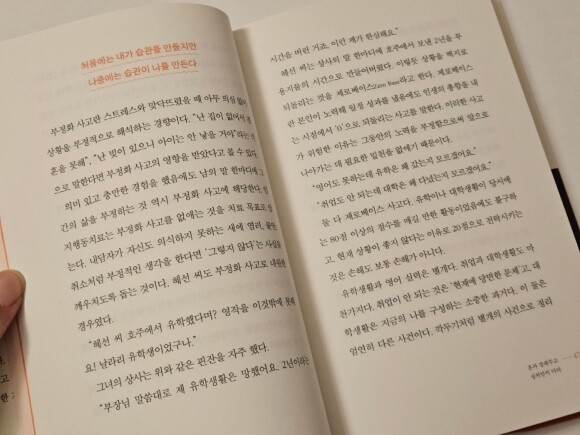 처음에는 내가 습관을 만들지만
나중에는 습관이 나를 만든다
부정화 사고란 스트레스와 맞닥뜨렸을 때 아무 의심 없이
상황을 부정적으로 해석하는 경향이다. “난 집이 없어서 결
혼을 못해”, “난 빚이 있으니 아이는 안 낳을 거야”라는 식
으로 말한다면 부정화 사고의 영향을 받았다고 볼 수 있다.
의미 있고 충만한 경험을 했음에도 남의 말 한마디에 그
간의 삶을 부정하는 것 역시 부정화 사고에 해당한다. 인
지행동치료는 부정화 사고를 없애는 것을 치료 목표로 삼
는다. 내담자가 자신도 의식하지 못하는 새에 염려, 불안,
취소처럼 부정적인 생각을 한다면 ‘그렇지 않다’는 사실을
깨우치도록 돕는 것이다. 혜선 씨도 부정화 사고로 내원한
경우였다.
“혜선 씨 호주에서 유학했다며? 영작을 이것밖에 못해
요! 날라리 유학생이었구나.”
그녀의 상사는 위와 같은 핀잔을 자주 했다.
“부장님 말씀대로 제 유학생활은 망했어요. 2년이라는
시간을 버린 거죠. 이런 제가 한심해요.”
혜선 씨는 상사의 말 한마디에 호주에서 보낸 2년을 무
용지물의 시간으로 만들어버렸다. 이렇듯 상황을 백지로
되돌리는 것을 제로베이스Zero Base라고 한다. 제로베이스
란 본인이 노력해 일정 성과를 냈음에도 인생의 총합을 내
는 시점에서 ‘0’으로 되돌리는 사고를 말한다. 이러한 사고
가 위험한 이유는 그동안의 노력을 부정함으로써 앞으로
나아가는 데 필요한 밑천을 없애기 때문이다.
“영어도 못하는데 유학은 왜 갔는지 모르겠어요.”
“취업도 안 되는데 대학은 왜 다녔는지 모르겠어요.”
둘 다 제로베이스 사고다. 유학이나 대학생활이 당시에
는 80점 이상의 점수를 매길 만한 활동이었음에도 불구하
고, 현재 상황이 좋지 않다는 이유로 20점으로 전락시키는
것은 손해도 보통 손해가 아니다.
유학생활과 영어 실력은 별개다. 취업과 대학생활도 마
찬가지다. 취업이 안 되는 것은 ‘현재에 당면한 문제’고, 대
학생활은 지금의 나를 구성하는 소중한 과거다. 이 둘은
엄연히 다른 사건이다. 깍두기처럼 별개의 사건으로 잘라